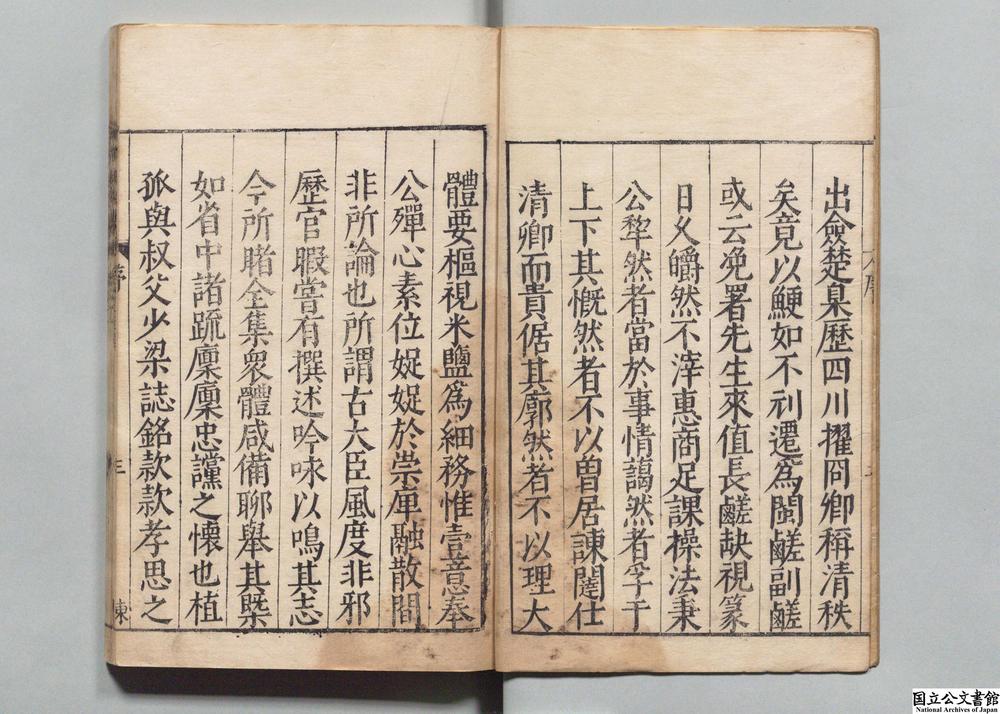 出僉楚臬歷四川擢冏卿稱清秩
矣竟以鯁如不利遷爲閩鹺副鹺
或云浼署先生來值長鹺缺視篆
日乂皭然不滓惠商足課操法秉
公犂然者當於事情藹然者孚于
上下其慨然者不以曾居諫闥仕
清卿而貴倨其廓然者不以理大
體要樞視米鹽爲細務惟壹意奉
公殫心素位娖娖於崇庫融散間
非所論也所謂古大臣風度非邪
歷官暇嘗有撰述吟咏以鳴其志
今所睹全集衆體咸備聊舉其槩
如省中諸疏廩廩忠讜之懷也植
孤與叔父少梁誌銘款款孝思之
序
三
東
国立公文書館
National Archives of Japan